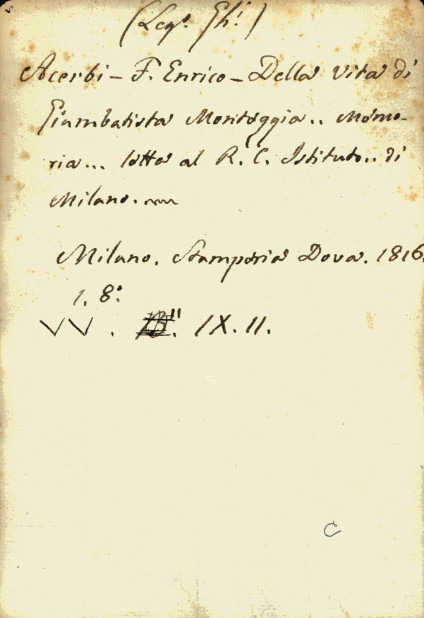 (Leg. Ghi)
Acerbi - F. Enrico - Della vita di
Giambatista Monteggia.. Memo-
ria... letta al R. C. Istituto.. di
Milano.
Milano. Stamperia Dova. 1816.
1. 8.°
VV. IX. 11.
C